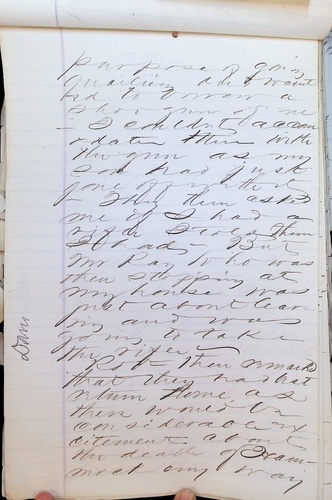 purpose of going
quailing and want
ed to borrow a
shot gun of me
- I couldnt accom
odate them with
the gun as my
son had just
gone off with it
- They then asked
me if I had a
rifle I told them
I had - But
Mr Ray who was
then stopping at
my house was
just about leav
ing and was
going to take
the rifle
Rob then remarked
that they had best
return home as
there would be
considerable ex
citement about
the death of Ham-
mock any way
Davis